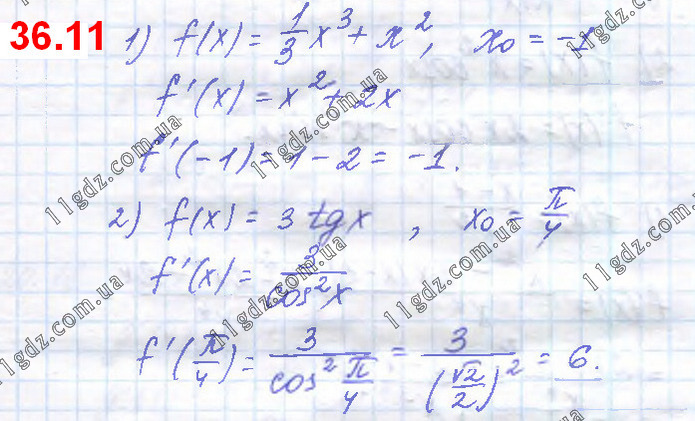 36.11 1) f(x) = 1/3 x³ + x², x₀ = -1
f'(x) = x² + 2x
f'(-1) = 1 - 2 = -1.
2) f(x) = 3 tg x, x₀ = π/4
f'(x) = 3/cos²x
f'(π/4) = 3/cos² π/4 = 3/(√2/2)² = 6.
11gdz.com.ua
11gdz.com.ua
11gdz.com.ua
11gdz.com.ua
11gdz.com.ua
11gdz.com.ua